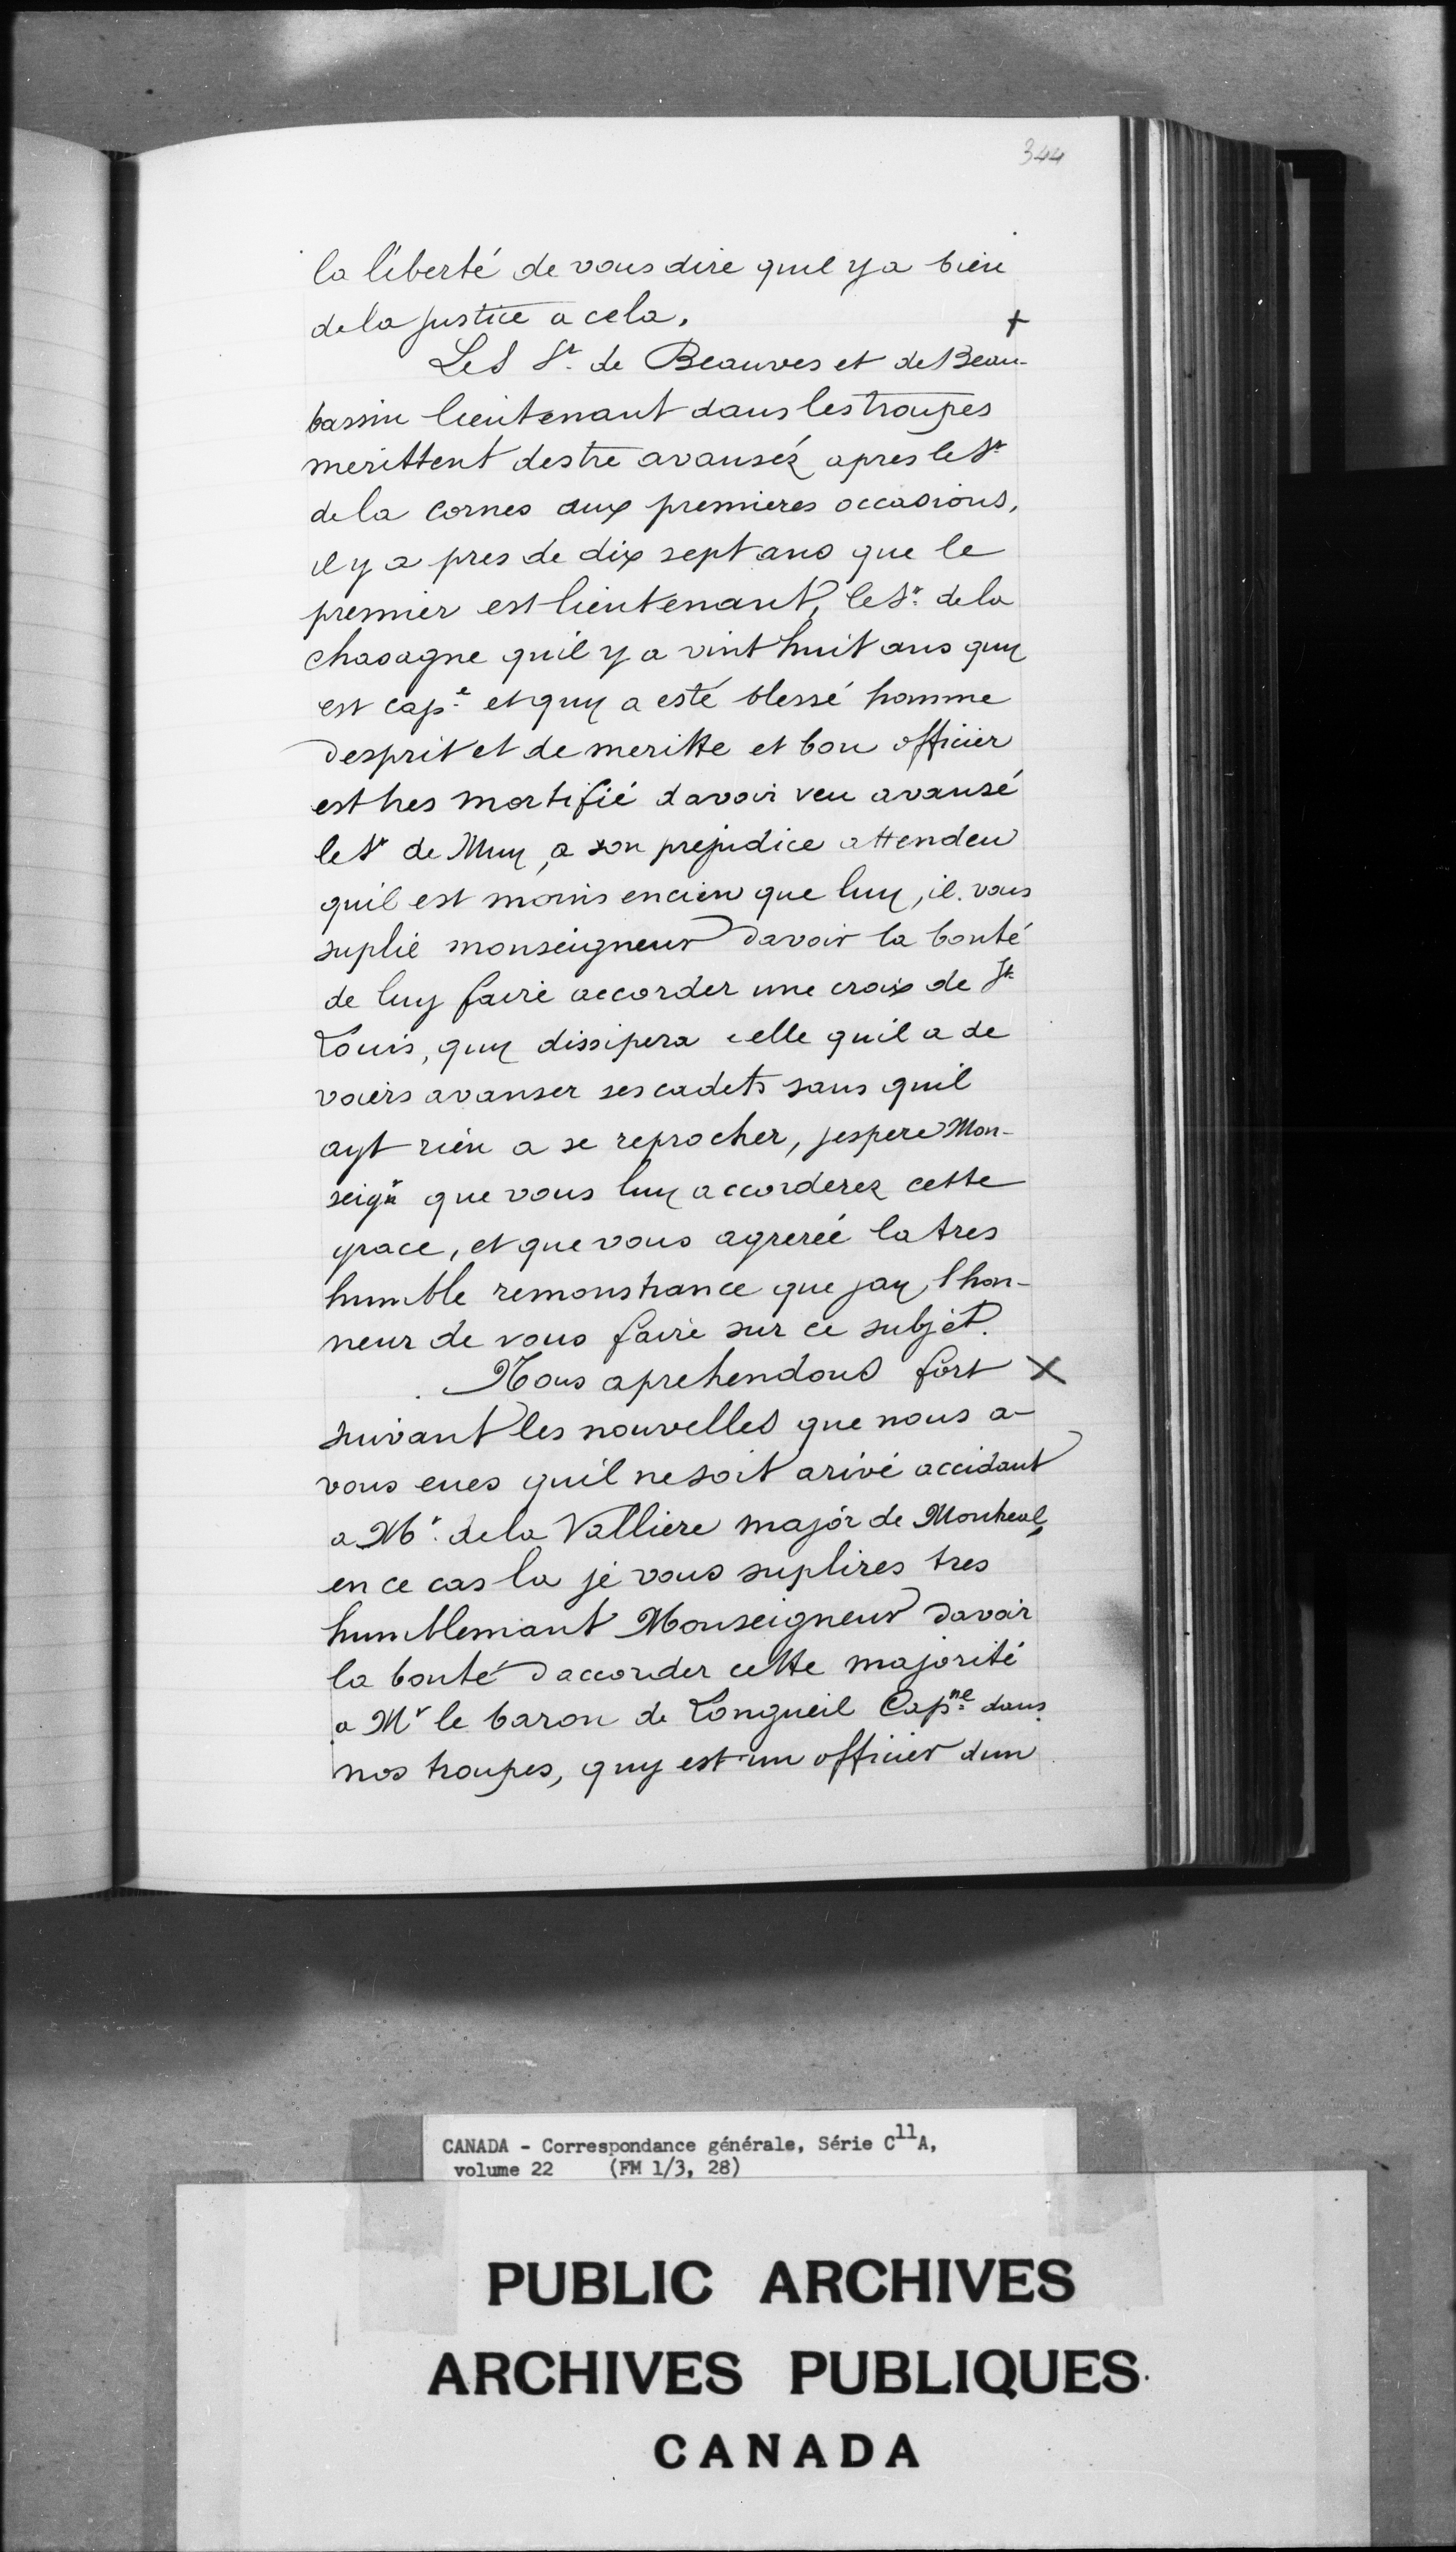 344
la liberté de vous dire quil y a bien
de la justice a cela. +
Les Sr. de Beauves et de Beau-
bassin lieutenant dans les troupes
merittent destre avansez apres le Sr
de la Cornes aux premieres occasions,
il y a pres de dix sept ans que le
premier est lieutenant, le Sr. de la
chasagne quil y a vint huit ans quy
est cap.e et quy a esté blessé homme
desprit et de meritte et bon officier
est tres mortifié davoir veu avansé
le Sr de Muy, a son prejudice attendeu
quil est moins encien que luy, il vous
suplie monseigneur davoir la bonté
de luy faire accorder une croix de St
Louis, quy dissipera celle quil a de
voiers avanser ses cadets sans quil
ayt rien a se reprocher, jespere Mon-
seigr que vous luy accorderez cette
grace, et que vous agrereé la tres
humble remonstrance que jay lhon-
neur de vous faire sur ce subjet.
Nous aprehendons fort X
suivant les nouvelles que nous a-
vons eues quil ne soit arivé accidant
a Mr. de la Valliere major de Montreal,
en ce cas la je vous suplires tres
humblemant Monseigneur davoir
la bonté daccorder cette majorité
a Mr le baron de Longueil Capne dans
nos troupes, quy est un officier dun
CANADA - Correspondance générale, Série C11A,
volume 22 (FM 1/3, 28)
PUBLIC ARCHIVES
ARCHIVES PUBLIQUES
CANADA